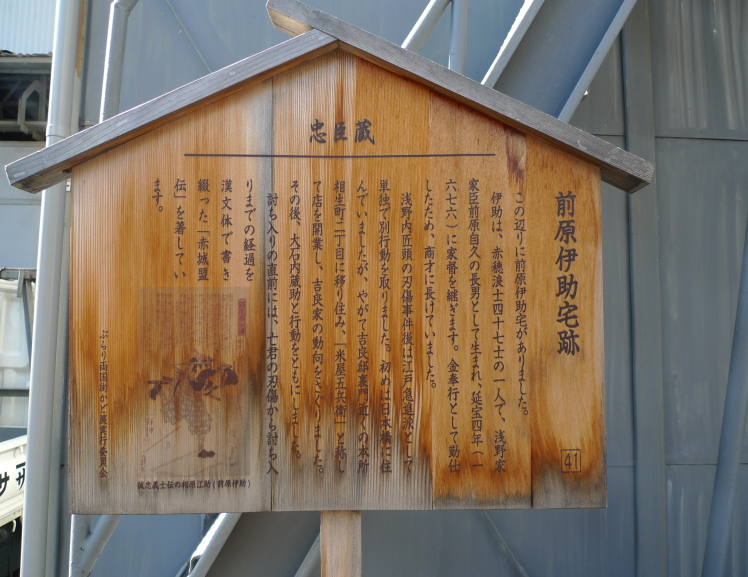 忠臣蔵
前原伊助宅跡
41
この辺りに前原伊助宅がありました。
伊助は、赤穂浪士四十七士の一人で、浅野家
家臣前原自久の長男として生まれ、延宝四年(一
六七六)に家督を継ぎます。金奉行として勤仕
したため、商才に長けていました。
浅野内匠頭の刃傷事件後は江戸急進派として
単独で別行動を取りました。初めは日本橋に住
んでいましたが、やがて吉良邸裏門近くの本所
相生町二丁目に移り住み、「米屋五兵衛」と称し
て店を開業し、吉良家の動向をさぐりました。
その後、大石内蔵助と行動をともにしました。
討ち入りの直前には、七君の刃傷から討ち入
りまでの経過を
漢文体で書き
綴った「赤城盟
伝」を著してい
ます。
誠忠義士伝の相原江助(前原伊助)
ぶらり両国街かど展実行委員会
サ